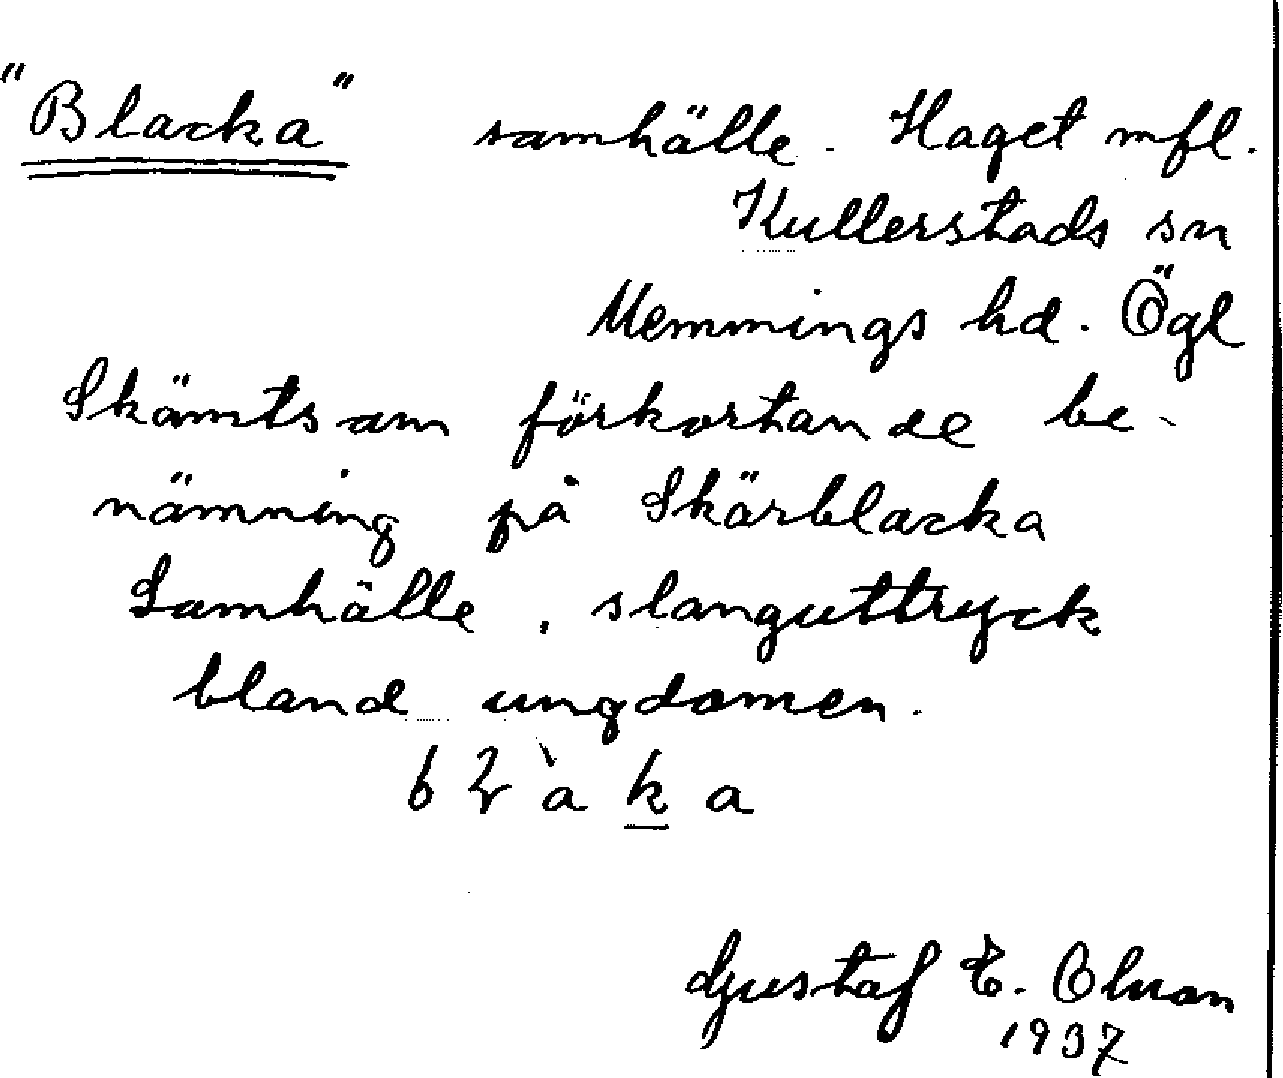 "Blacka" samhälle. Haget mfl.
Kullerstads sn
Memmings hd. Ögl
Skämtsam förkortande be-
nämning på Skärblacka
Samhälle, slanguttryck
bland ungdomen.
a k a
Gustaf E.
1937